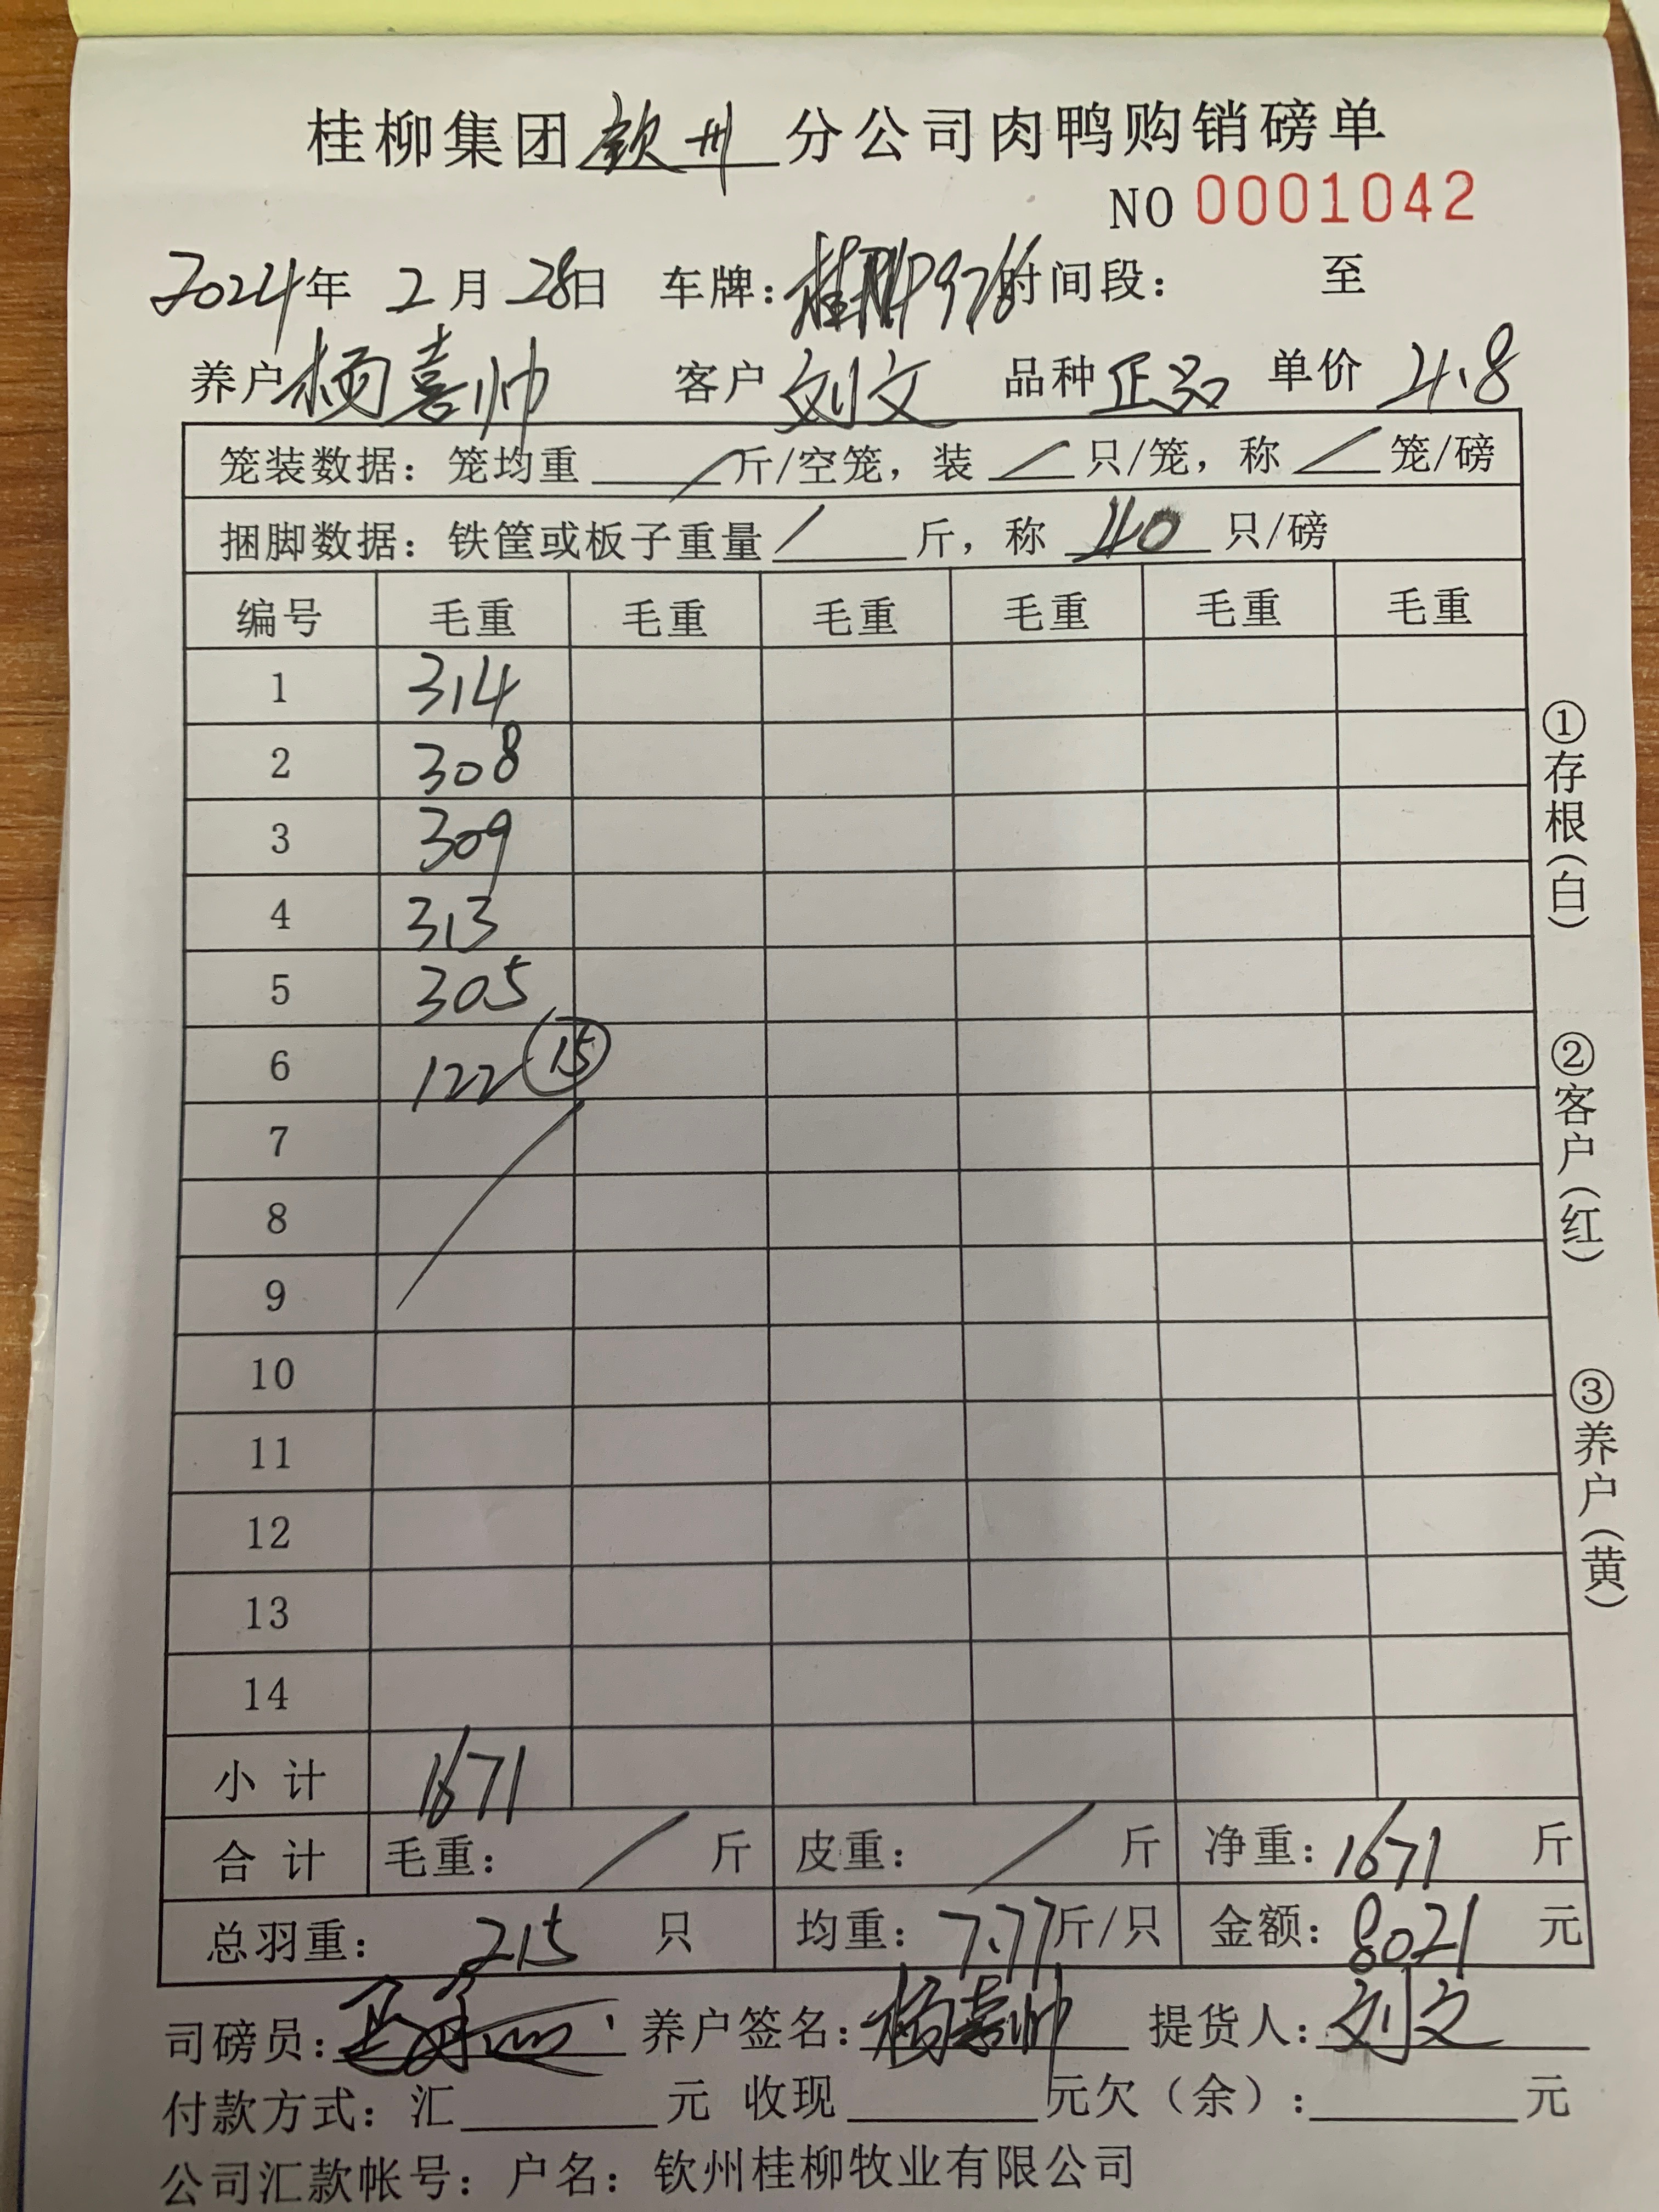 桂柳集团钦州分公司肉鸭购销磅单
NO 0001042
2024年 2月 28日 车牌：桂 时间段： 至
养户 杨喜帅 客户 刘文 品种 正品 单价 4.8
笼装数据：笼均重 / 斤/空笼，装 / 只/笼，称 / 笼/磅
捆脚数据：铁筐或板子重量 / 斤，称 40 只/磅
编号 毛重 毛重 毛重 毛重 毛重 毛重
1 314
2 308
3 309
4 313
5 305
6 122 ⑮
7
8
9
10
11
12
13
14
小计 1671
合计 毛重： / 斤 皮重： / 斤 净重：1671 斤
总羽重： 215 只 均重：7.77斤/只 金额：8021 元
司磅员： 养户签名：杨喜帅 提货人：刘文
付款方式：汇 元 收现 元欠（余）： 元
公司汇款帐号：户名：钦州桂柳牧业有限公司
①存根（白）
②客户（红）
③养户（黄）